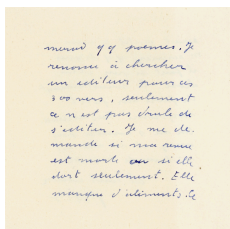 mervoi 49 poemes. Je
renonse à chercher
un editeur pour ces
300 vers, seulement
ce n'est pas drole de
s'editer. Je me de-
mande si ma revue
est morte ou si elle
dort seulement. Elle
manque d'aliments. Le